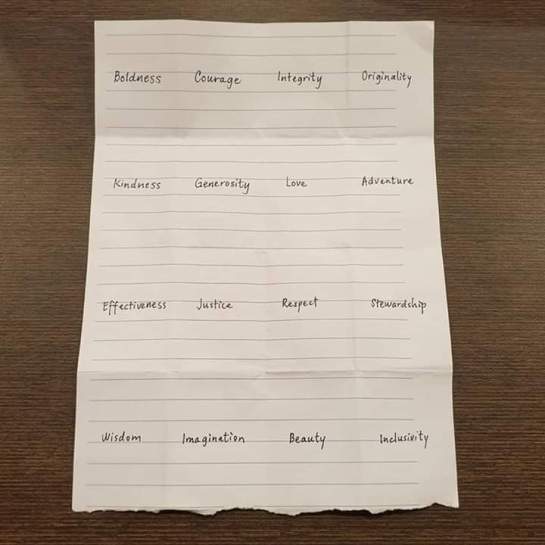 Boldness Courage Integrity Originality
Kindness Generosity Love Adventure
Effectiveness Justice Respect Stewardship
Wisdom Imagination Beauty Inclusivity